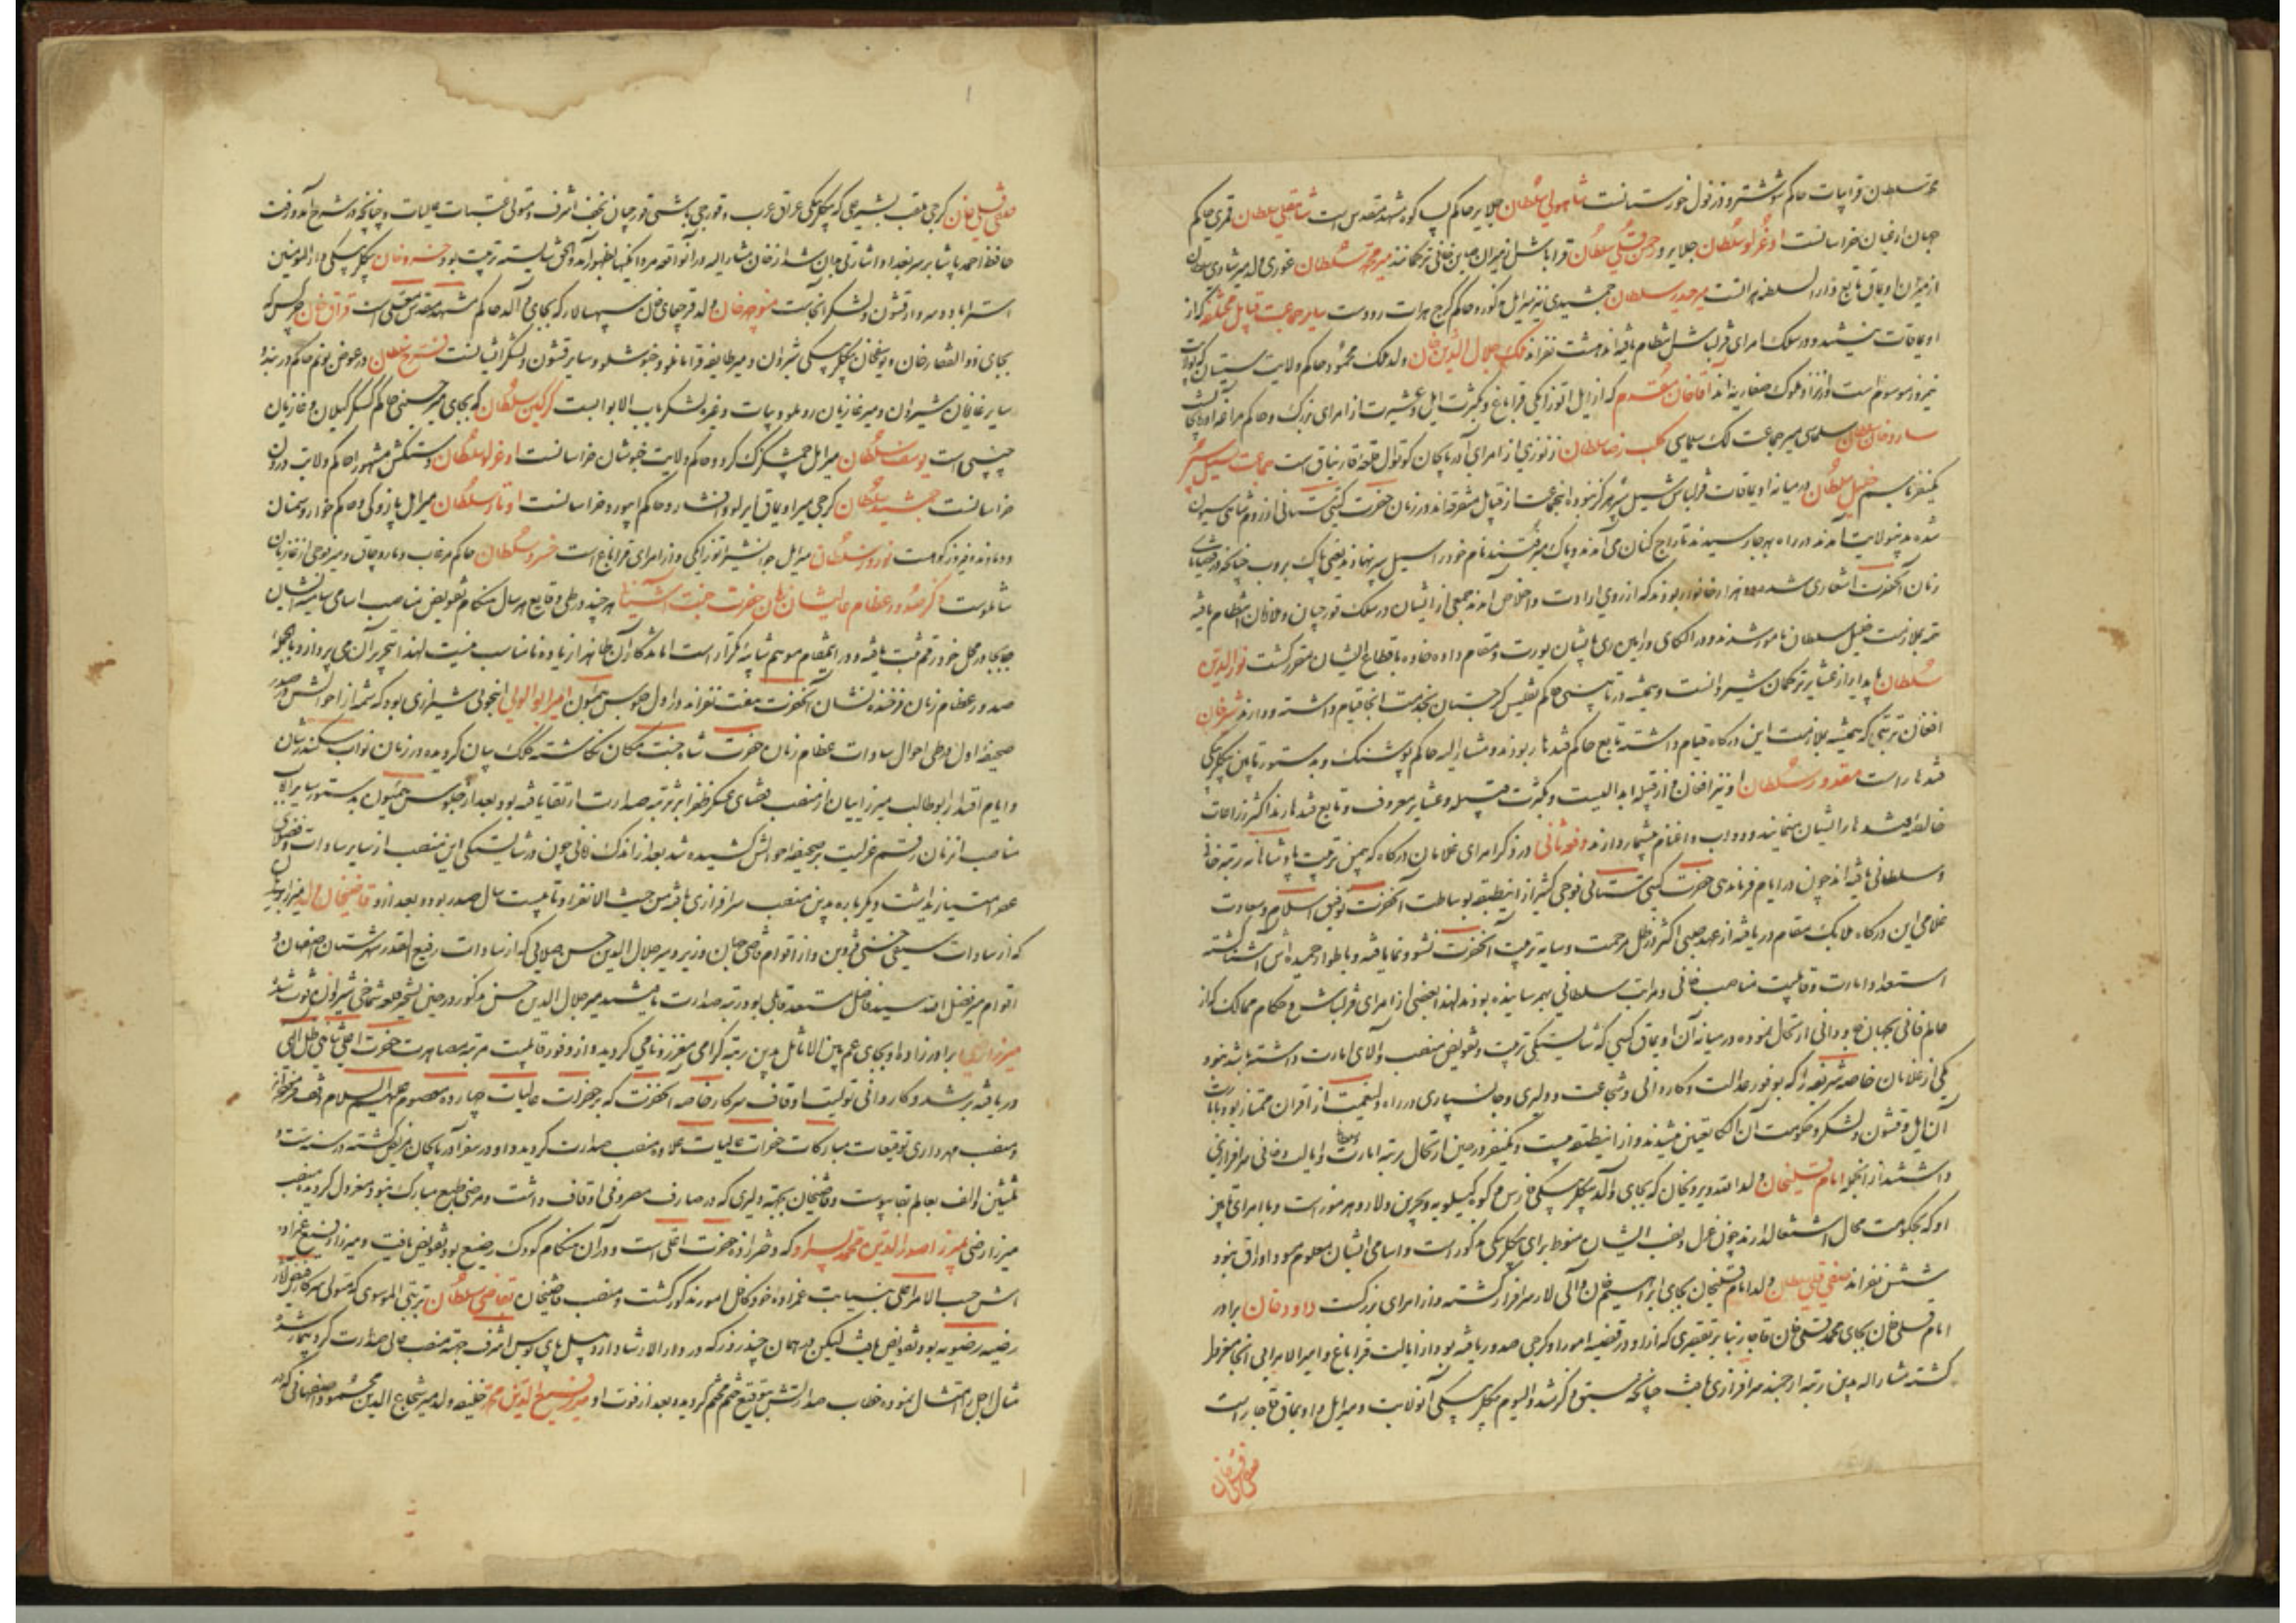 محمد سلطان قرا بیات حاکم شوشتر و دزفول خوزستانست شاهویردی سلطان جلایر حاکم پساکوه مشهد مقدس است شاهقلی سلطان قمری حاکم
جهان ارغیان خراسانست اوغرلو سلطان جلایر و حسن قلی سلطان قراباشل از میران معاین خانی ترکمانند میر محمد سلطان غوری ولد میر شادی سلطان
از میران اویماق تابع دار السلطنه هراتست میر حیدر سلطان جمشیدی نیز میر ایل مذکور و حاکم کرخ هرات رودست سایر جماعت قبایل مختلفه که از
اویماقات نیستند و در سلک امرای قزلباش انتظام یافته‌اند هشت نفرند ملک جلال الدین خان ولد ملک محمود حاکم ولایت سیستان که بولایت
نیمروز موسوم است و از نژاد ملوک صفاریه‌اند آقاخان مقدم که از ایل اتوزایکی قراباغ و بکثرت ایل و عشیرت از امرای بزرگ و حاکم مراغه آذربایجانست
ساروخان سلطان سلماسی میر جماعت لک سلماسی کلب رضا سلطان زنوزی از امرای آذربایجان کوتوال قلعه قارنیاق است جماعت سیل سپر
یکنفر باسم خلیل سلطان در میانه اویماقات قزلباش سیل سپر هرگز نبوده اینجماعت از قبایل متفرقه‌اند در زمان حضرت گیتی ستانی از روم شاهی سیون
شده بدینولایت آمدند در راه بهر جا رسیدند تاراج کنان می‌آمدند و پاک میرفتند نام خود را سیل سپر نهادند یعنی پاک بروب چنانکه در قضایای
زمان آنحضرت اشعاری شد دو هزار خانوار بودند که از روی ارادت و اخلاص آمدند جمعی از ایشان در سلک قورچیان و غلامان انتظام یافته
تتمه بملازمت خلیل سلطان مامور شدند و در الکای ورامین ری بایشان یورت و مقام داده خانه باقطاع ایشان مقرر گشت نور الدین
سلطان پایدار از عشایر ترکمان شیروانست و همیشه در تابینی حاکم تفلیس گرجستان بخدمت آنجا قیام داشته و دارد شیر خان
افغان ترینی که همیشه بملازمت این درگاه قیام داشته تابع حاکم قندهار بودند و مشار الیه حاکم فوشنک و بدستور تابین بیگلربیگی
قندهار است مقدور سلطان او نیز افغان و از قبیله ابدالیست و بکثرت قبیله و عشایر معروف و تابع قندهارند اکثر زراعات
خالصه قندهار را ایشان مینمایند و دواب و اغنام بیشمار دارند دفعه ثانی در ذکر امرای غلامان درگاه که بیمن تربیت پادشاهانه رتبه خانی
و سلطانی یافته‌اند چون در ایام فرماندهی حضرت گیتی ستانی فوجی کثیر از اینطبقه بوساطت آنحضرت توفیق اسلام و سعادت
غلامی این درگاه ملایک مقام دریافته از عهد صبی اکثر در ظل مرحمت و سایه تربیت آنحضرت نشو و نما یافته و باطوار حمیده اش آشنا گشته
استعداد امارت و قابلیت مناصب خانی و مراتب سلطانی بهم رسانیده بودند لهذا بعضی از امرای قزلباش و حکام ممالک که از
عالم فانی بجهان جاودانی ارتحال نموده در میانه آن اویماق کسی که شایستگی تربیت و تفویض منصب والای امارت داشته باشد نبود
یکی از غلامان خاصه شریفه را که بوفور عدالت و کاردانی و شجاعت و دلیری و جان سپاری در راه ولینعمت از اقران ممتاز بود بایالت
آن ایل و قشون و لشکر و حکومت آن الکا تعیین میشدند و از اینطبقه بیست و یکنفر در حین ارتحال برتبه امارت و ایالت و خانی سرافرازی
داشتند از آنجمله امام قلیخان ولد الله ویردیخان که بجای والد بیگلربیگی فارس و کوه گیلویه و بحرین و لار و هرمز است و با امرای تابین
او که بحکومت محال اشتغال دارند چون عزل و نصب ایشان منوط برای بیگلربیگی مذکور است و اسامی ایشان معلوم مسود اوراق نبود
شش نفرند صفی قلی سلطان ولد امام قلیخان بجای ابراهیم خان والی لار سرافراز گشته و از امرای بزرگست داود خان برادر
امام قلی خان بجای محمد قلی خان قاجار بنا بر تقصیری که از او در قضیه امور او گرجی صدور یافته بود از ایالت قراباغ و امیر الامرایی آنجا مخروط
گشته مشار الیه بدین رتبه ارجمند سرافرازی یافت چنانچه سبق ذکر شد و الیوم بیگلربیگی آنولایت و میر ایل و اویماق قاجار است
صفی قلیخان
صفی قلی خان گرجی ملقب بشیر علی که بیگلربیگی عراق عرب و قورچی باشی قورچیان نجف اشرف و متولی عتبات عالیات و چنانچه در شرح آمد و رفت
حافظ احمد پاشا بر سر بغداد اشارتی بدان شد از خان مشار الیه در آنواقعه مردانگیها بظهور آمد و الحق شایسته تربیت بود خسرو خان بیگلربیگی دار المومنین
استراباد و سردار قشون و لشکر آنجاست منوچهر خان ولد قرچقای خان سپهسالار که بجای والد حاکم مشهد مقدس معلی است قزاق خان چرکس که
بجای ذو الفقار خان و یوسفخان بیگلربیگی شیروان و میر طایفه قرامانلو و خنوشلو و سایر قشون و لشکر ایشانست فرخ سلطان در عوض یونم حاکم دربند و
سایر غازیان شیروان و میر غازیان روملو و بیات و غیره لشکر باب الابوابست گرگین سلطان که بجای میر حسینی حاکم کسکر گیلان و غازیان
چپنی است یوسف سلطان میر ایل چمشگزک کرد و حاکم ولایت خبوشان خراسانست اوغرلو سلطان دستکش مشهور حاکم ولایت درون
خراسانست جمشید سلطان گرجی میر اویماق ایرلوی افشار و حاکم ابیورد خراسانست اوتار سلطان میر ایل پازوکی و حاکم خوار و سمنان
و دماوند و فیروزکوهست نوروز سلطان میر ایل جوانشیر اتوزایکی و از امرای قراباغ است خسرو سلطان حاکم مرغاب و ماروچاق و میر فوجی از غازیان
شاملوست ذکر صدور عظام عالیشان زمان حضرت جنت آشیانی هر چند در طی وقایع هر سال هنگام تفویض مناصب اسامی سامیه ایشان
جابجا در محل خود رقم ثبت یافته و در اینمقام موهم شایبه تکرار است اما تذکار آن طایفه از یاده نامناسب نیست لهذا بتحریر آن می‌پردازد بالجمله
صدور عظام زمان فرخنده نشان آنحضرت هفت نفرند در اول جلوس همیون امیر ابو الولی انجوی شیرازی بود که شمه از احوالش در صدر
صحیفه اول در طی احوال سادات عظام زمان حضرت شاه جنت مکان نگاشته کلک بیان گردیده در زمان نواب سکندر شان
و ایام اقتدار ابو طالب میرزاییان از منصب قضای عسکر ظفر اثر برتبه صدارت ارتقا یافته بود بعد از جلوس همیون بدستور سایر ارباب
مناصب آنزمان رقم عزلت بر صحیفه احوالش کشیده شد بعد از اندک زمانی چون در شایستگی این منصب از سایر سادات و فضلای
عصر امتیاز داشت دیگر باره بدین منصب سرافرازی یافته من حیث الانفراد تا بیست سال صدر بود و بعد از او قاضیخان ولد میرزا برهان
که از سادات سیفی حسنی قزوین و از اقوام قاضی جهان وزیر و میر جلال الدین حسن صلایی که از سادات رفیع القدر شهرستان اصفهان و
اقوام میر فضل الله سید فاضل مستعد قابل بود رتبه صدارت یافتند میر جلال الدین حسن مذکور در حین تسخیر قلعه شماخی شیروان فوت شد
میرزا رضی برادر زاده او بجای عم بین الاماثل بدین رتبه گرامی معزز و نامی گردیده و از وفور قابلیت مرتبه مصاهرت حضرت اعلی شاهی ظل اللهی
دریافته برشد و کاردانی تولیت اوقاف سرکار خاصه آنحضرت که بر حضرات عالیات چهارده معصوم علیهم السلام وقف فرموده‌اند
و منصب مهرداری توقیعات مبارکات حضرات عالیات علاوه منصب صدارت گردید و او در سفر آذربایجان مریض گشته در سنه ست و
ثلثین و الف بعالم بقا پیوست و قاضیخان بجهة دلیری که در مصارف مصروفی اوقاف داشت و مرضی طبع مبارک نبود معزول گردیده منصب
میرزا رضی بمیرزا صدر الدین محمد پسر او که دخترزاده حضرت اعلی است و در آن هنگام کودک رضیع بود تفویض یافت و میرزا رفیع عمزاده
اش حسب الامر اعلی بنیابت عمزاده خود متکفل امور مذکور گشت و منصب قاضیخان بقاضی سلطان تربتی الموسوی که متولی سرکار فیض آثار
رضیه رضویه بود تفویض یافت لیکن در همان چند روز که در دار الارشاد اردبیل بپای بوس اشرف جهة منصب عالی صدارت گردید بیمار شده
مثال اجل را امتثال نموده خطاب صدارتش بتوقیع ختم مختم گردیده بعد از فوت او میر رفیع الدین محمد خلیفه ولد میر شجاع الدین محمود اصفهانی که در